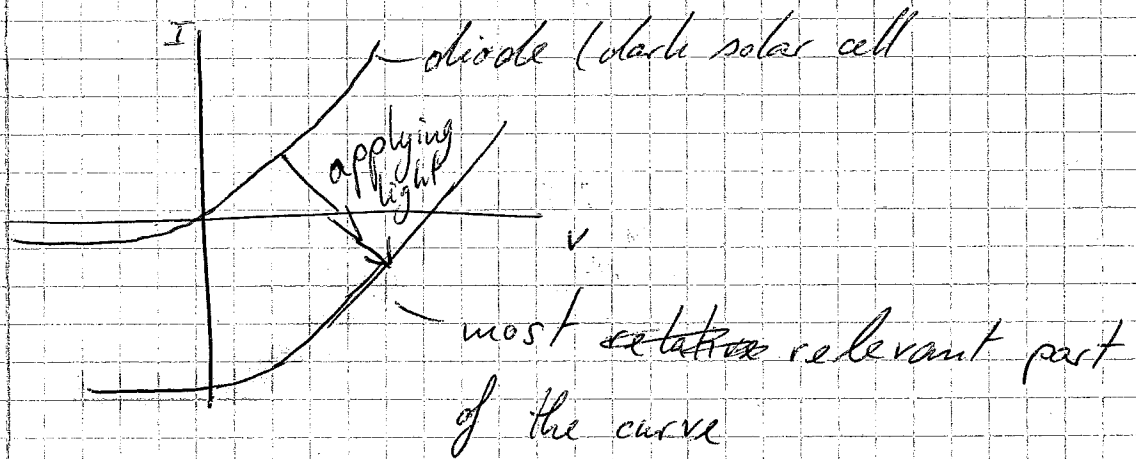 I
diode (dark solar cell
applying
light
V
most relevant part
of the curve